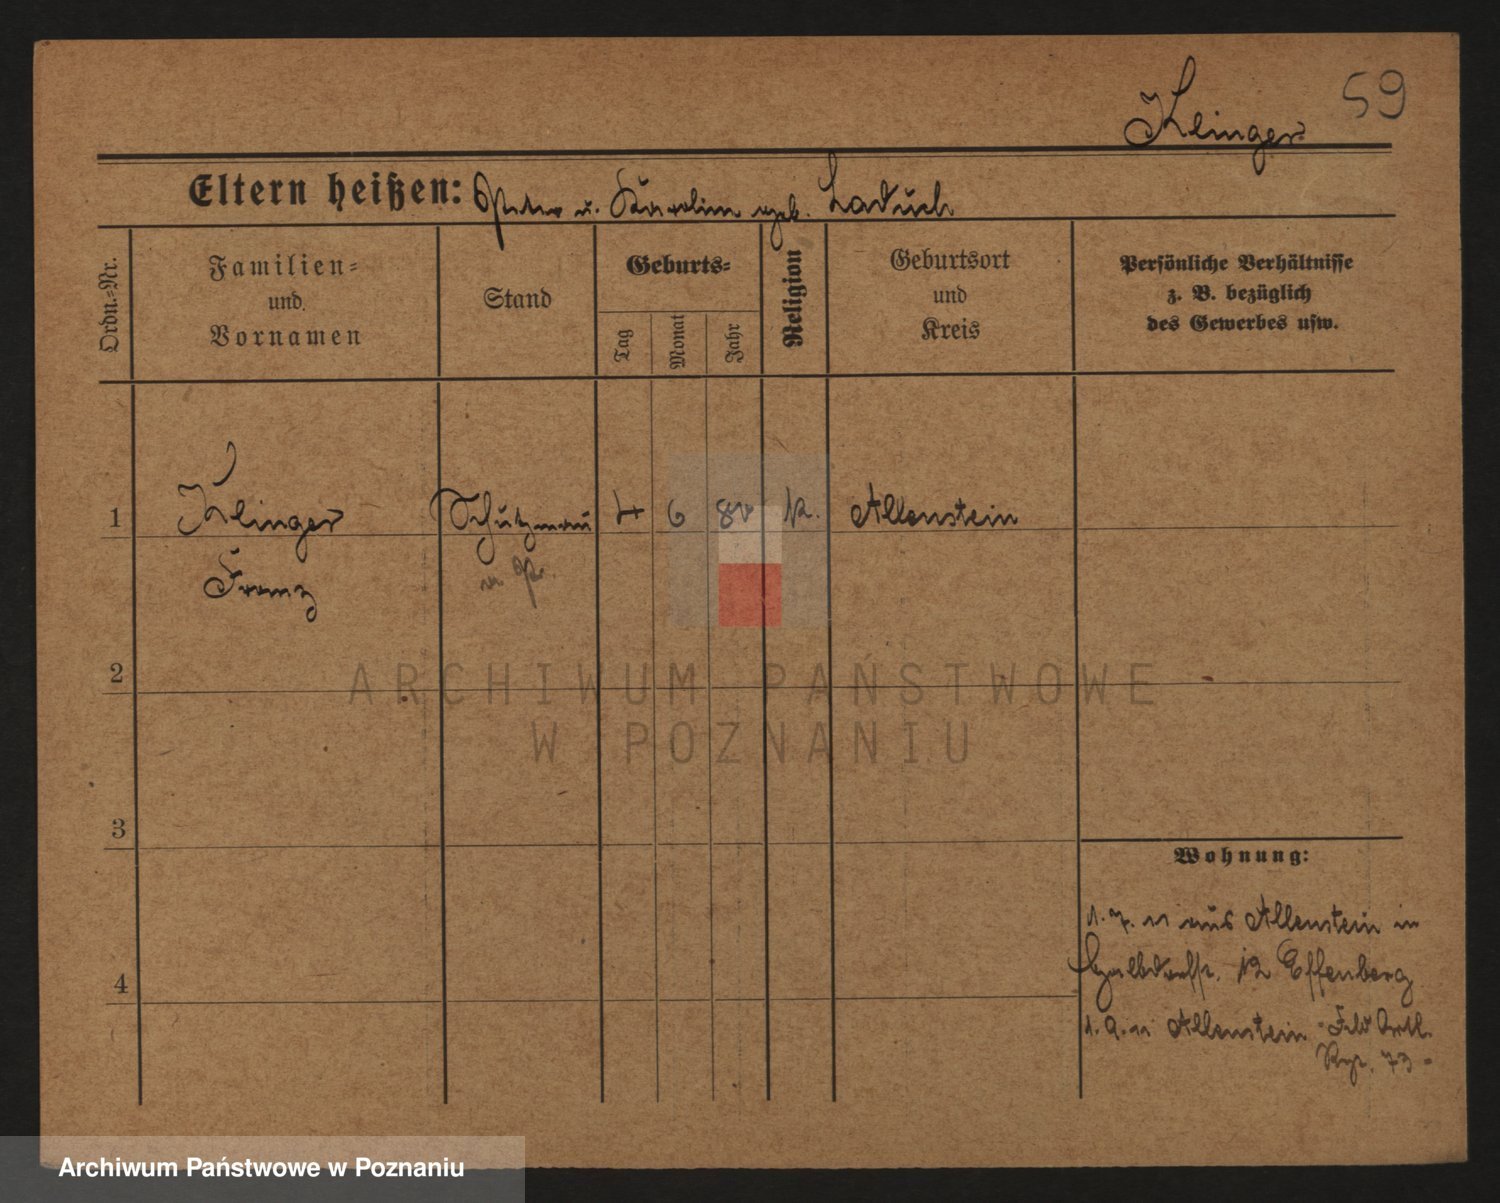 59
Klinger
Eltern heißen: Peter u. Karolina geb. Laduch
Ordn.-Nr.
Familien-
und
Vornamen
Stand
Geburts-
Tag
Monat
Jahr
Religion
Geburtsort
und
Kreis
Persönliche Verhältnisse
z. B. bezüglich
des Gewerbes usw.
1
Klinger
Schutzmann
4
6
k.
Allenstein
Franz
a. Pr.
2
ARCHIWUM PAŃSTWOWE
W POZNANIU
3
Wohnung:
1. 7. 11 aus Allenstein in
12 Effenberg
4
1. 9. 11 Allenstein - Feld Artl.
Rgt. 73 -
Archiwum Państwowe w Poznaniu